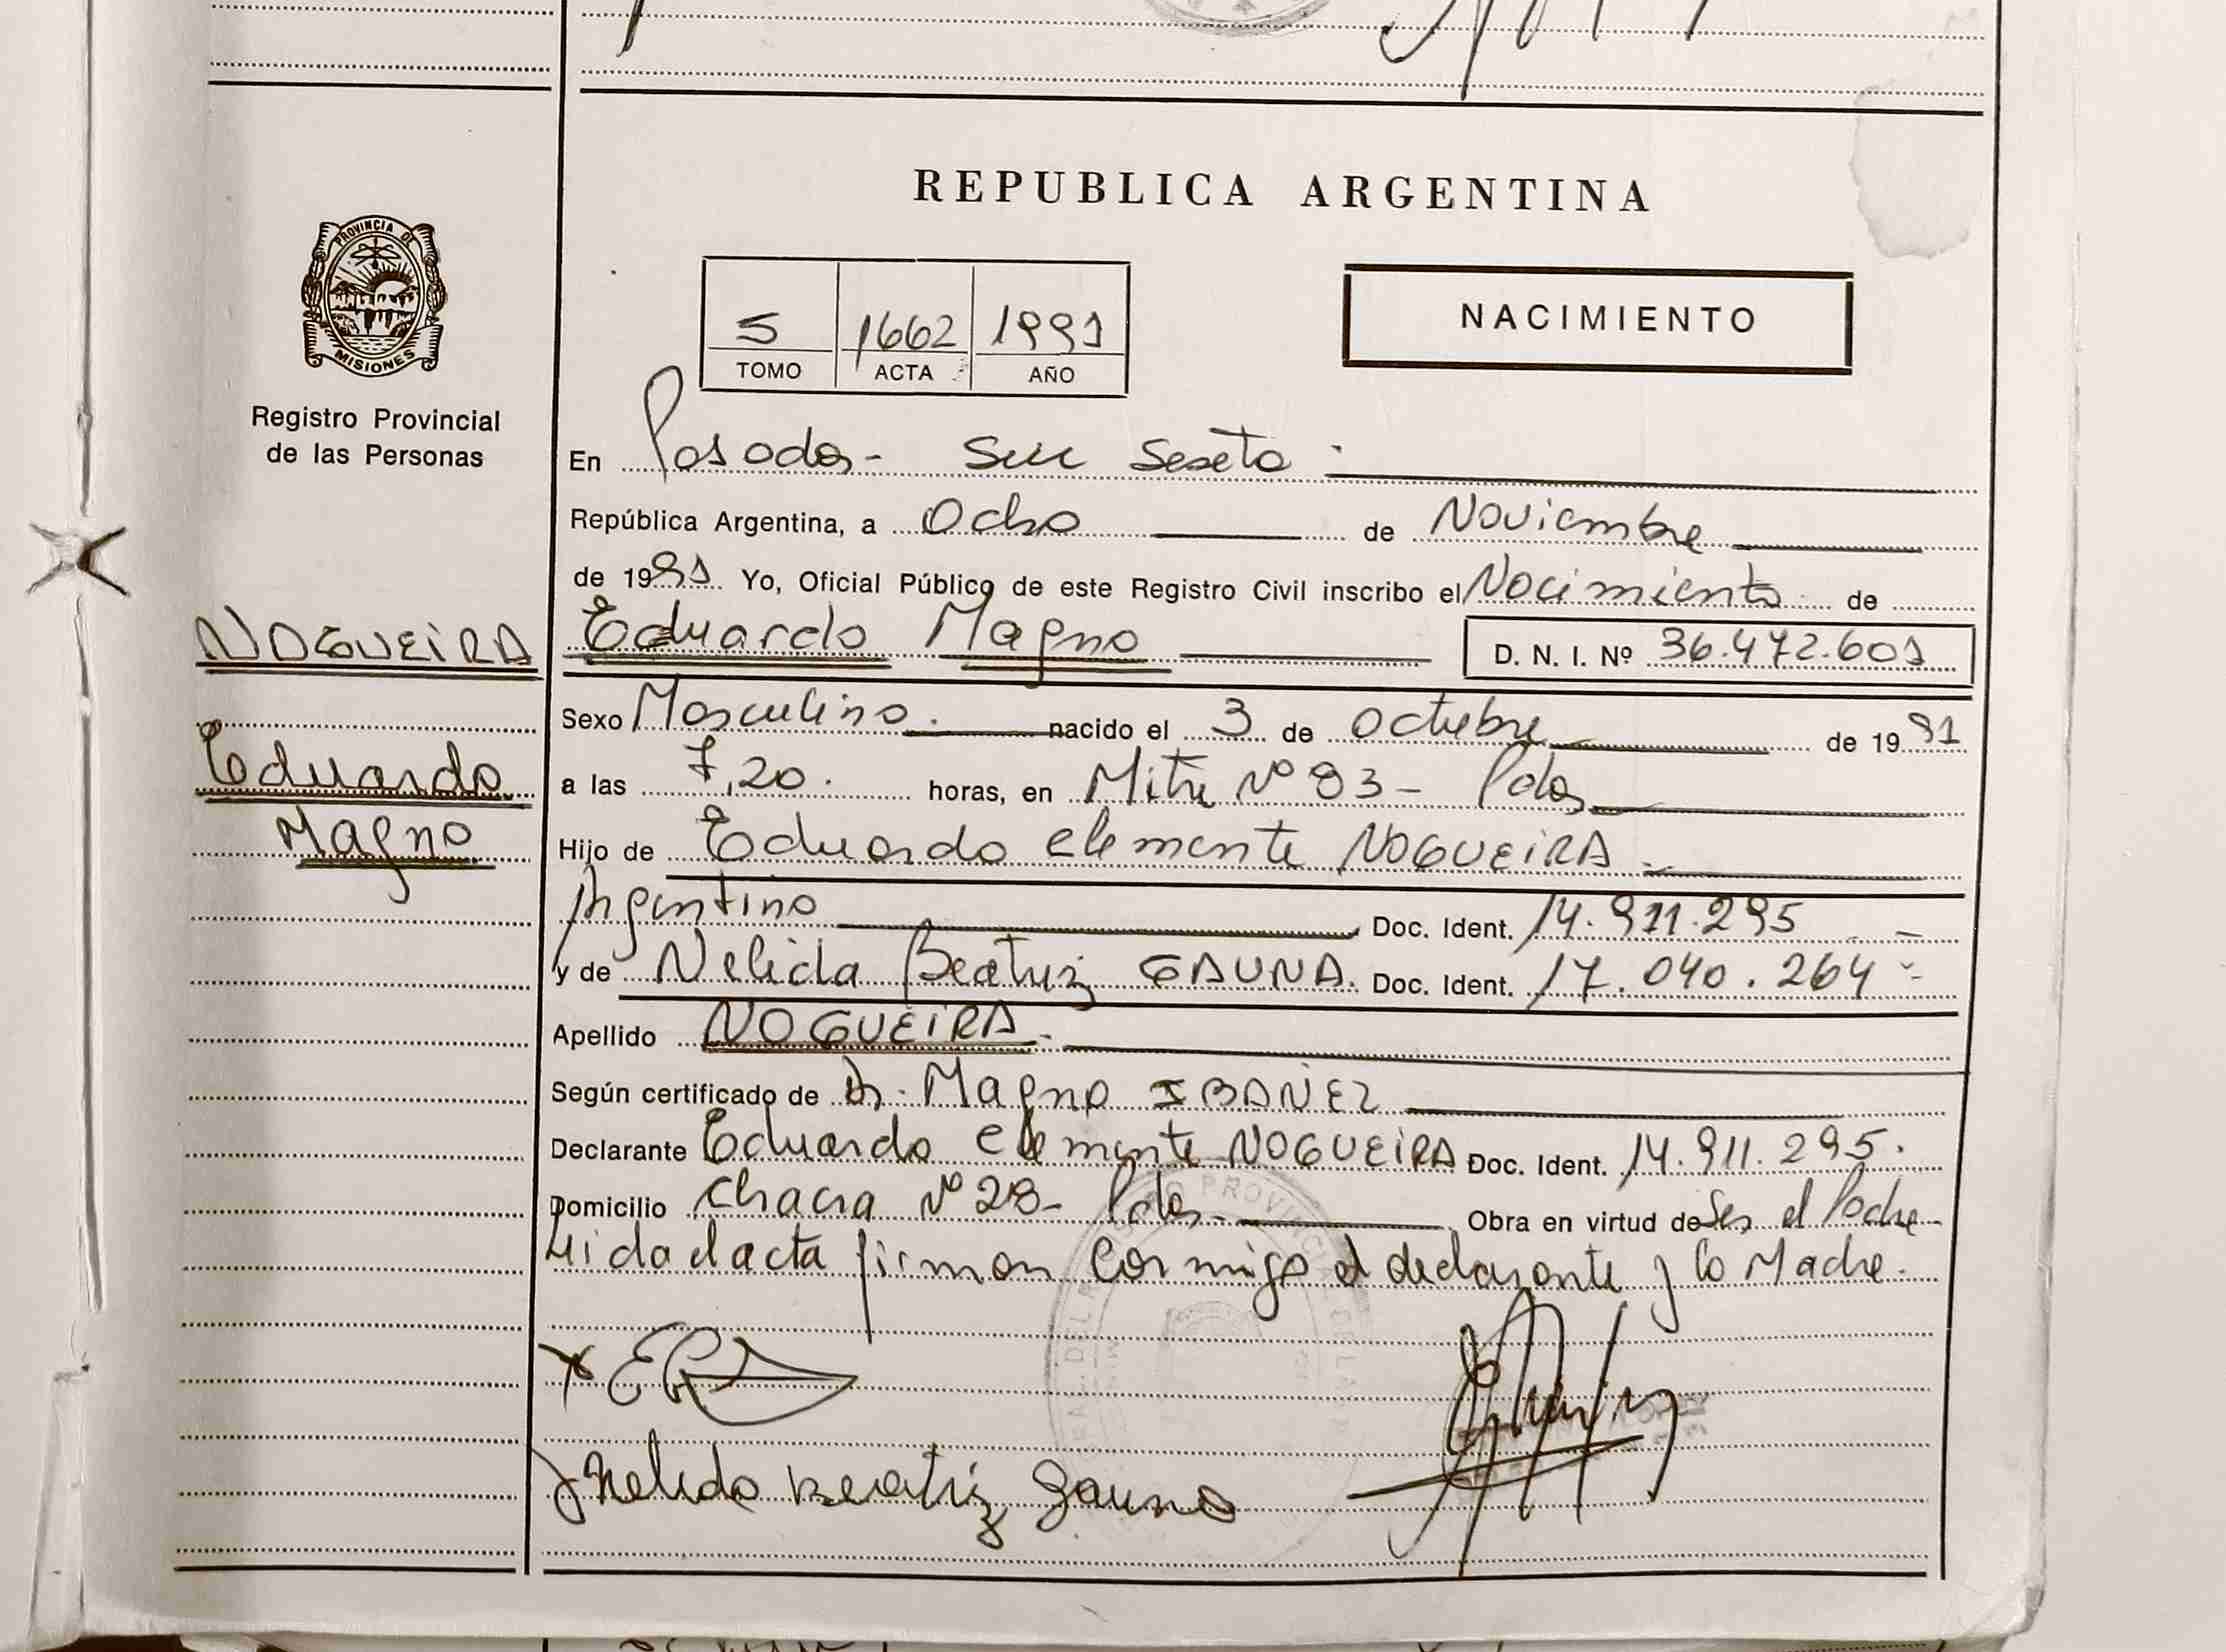 REPUBLICA ARGENTINA
PROVINCIA DE
MISIONES
Registro Provincial
de las Personas
5 1662 1991
TOMO ACTA AÑO
NACIMIENTO
En Posadas - Secc Sexta
República Argentina, a Ocho de Noviembre
de 1991 Yo, Oficial Público de este Registro Civil inscribo el Nacimiento de
NOGUEIRA
Eduardo Magno D. N. I. Nº 36.472.601
Sexo Masculino. nacido el 3 de Octubre de 1991
Eduardo
Magno
a las 7,20. horas, en Mitre Nº 93 - Pdas
Hijo de Eduardo Clemente NOGUEIRA
Argentino Doc. Ident. 14.911.295
y de Nelida Beatriz GAUNA. Doc. Ident. 17.040.264
Apellido NOGUEIRA
Según certificado de Dr. Magno IBAÑEZ
Declarante Eduardo Clemente NOGUEIRA Doc. Ident. 14.911.295.
Domicilio Chacra Nº 28- Pdas- Obra en virtud de Ser el Padre-
Leida el acta firman conmigo el declarante y la Madre.
Nelida Beatriz Gauna